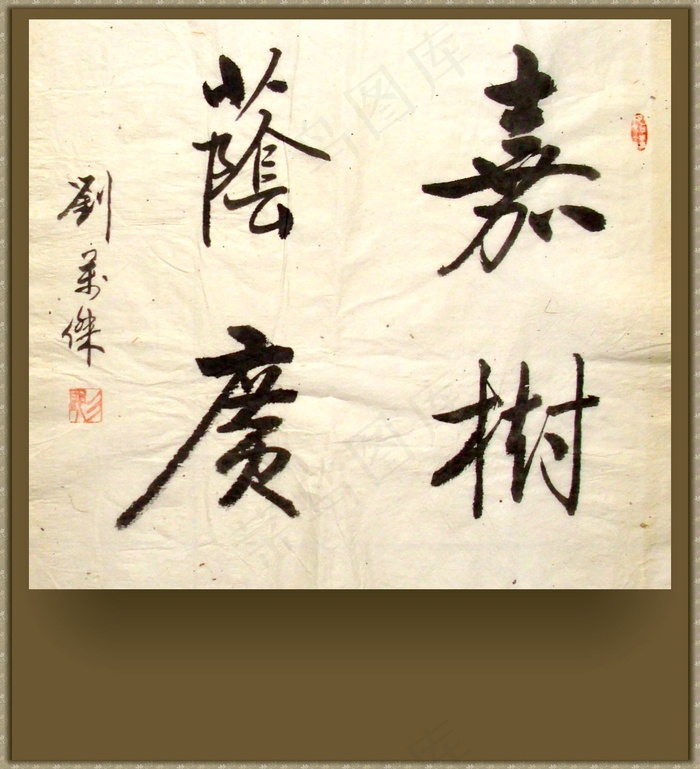 嘉樹
蔭廣
劉萬傑